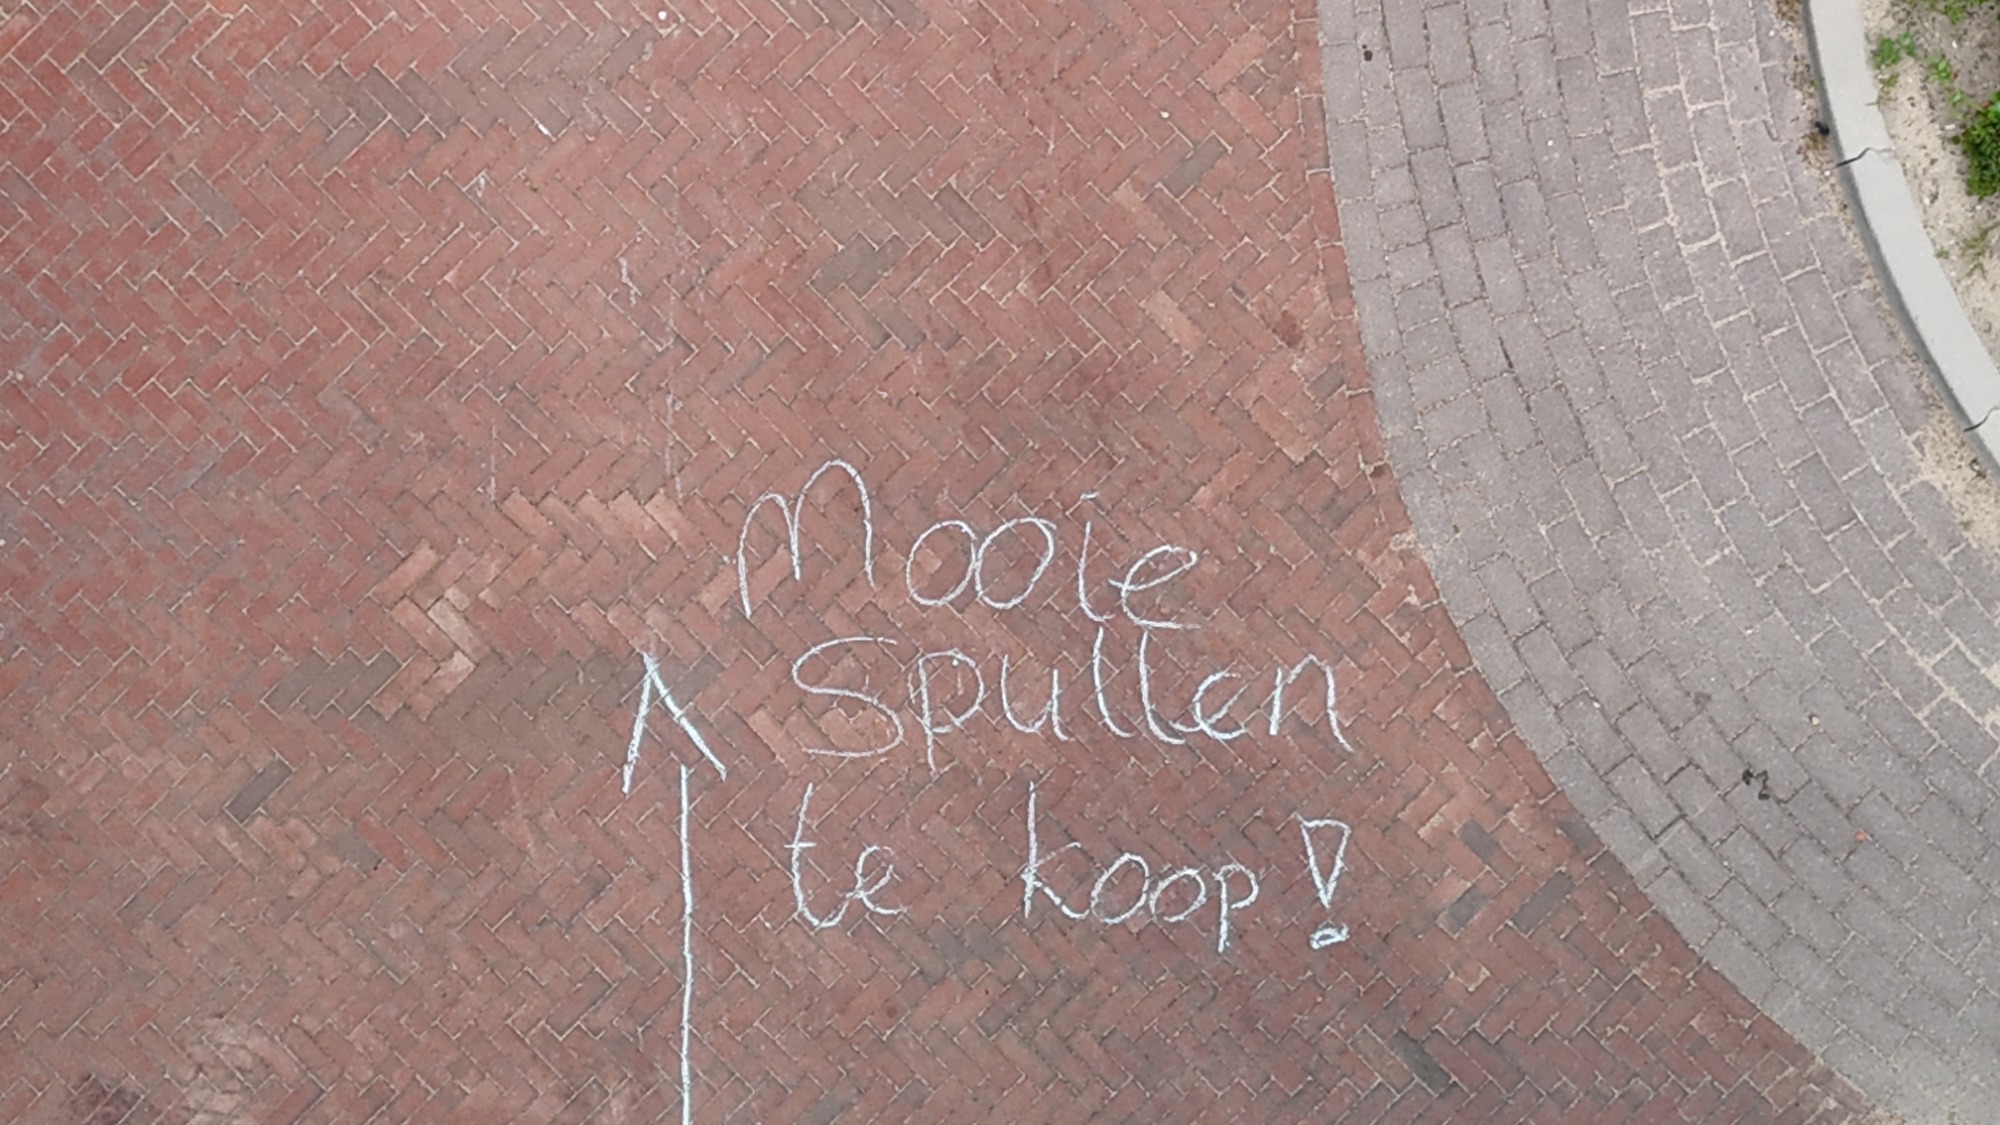 Mooie
Spullen
te koop!